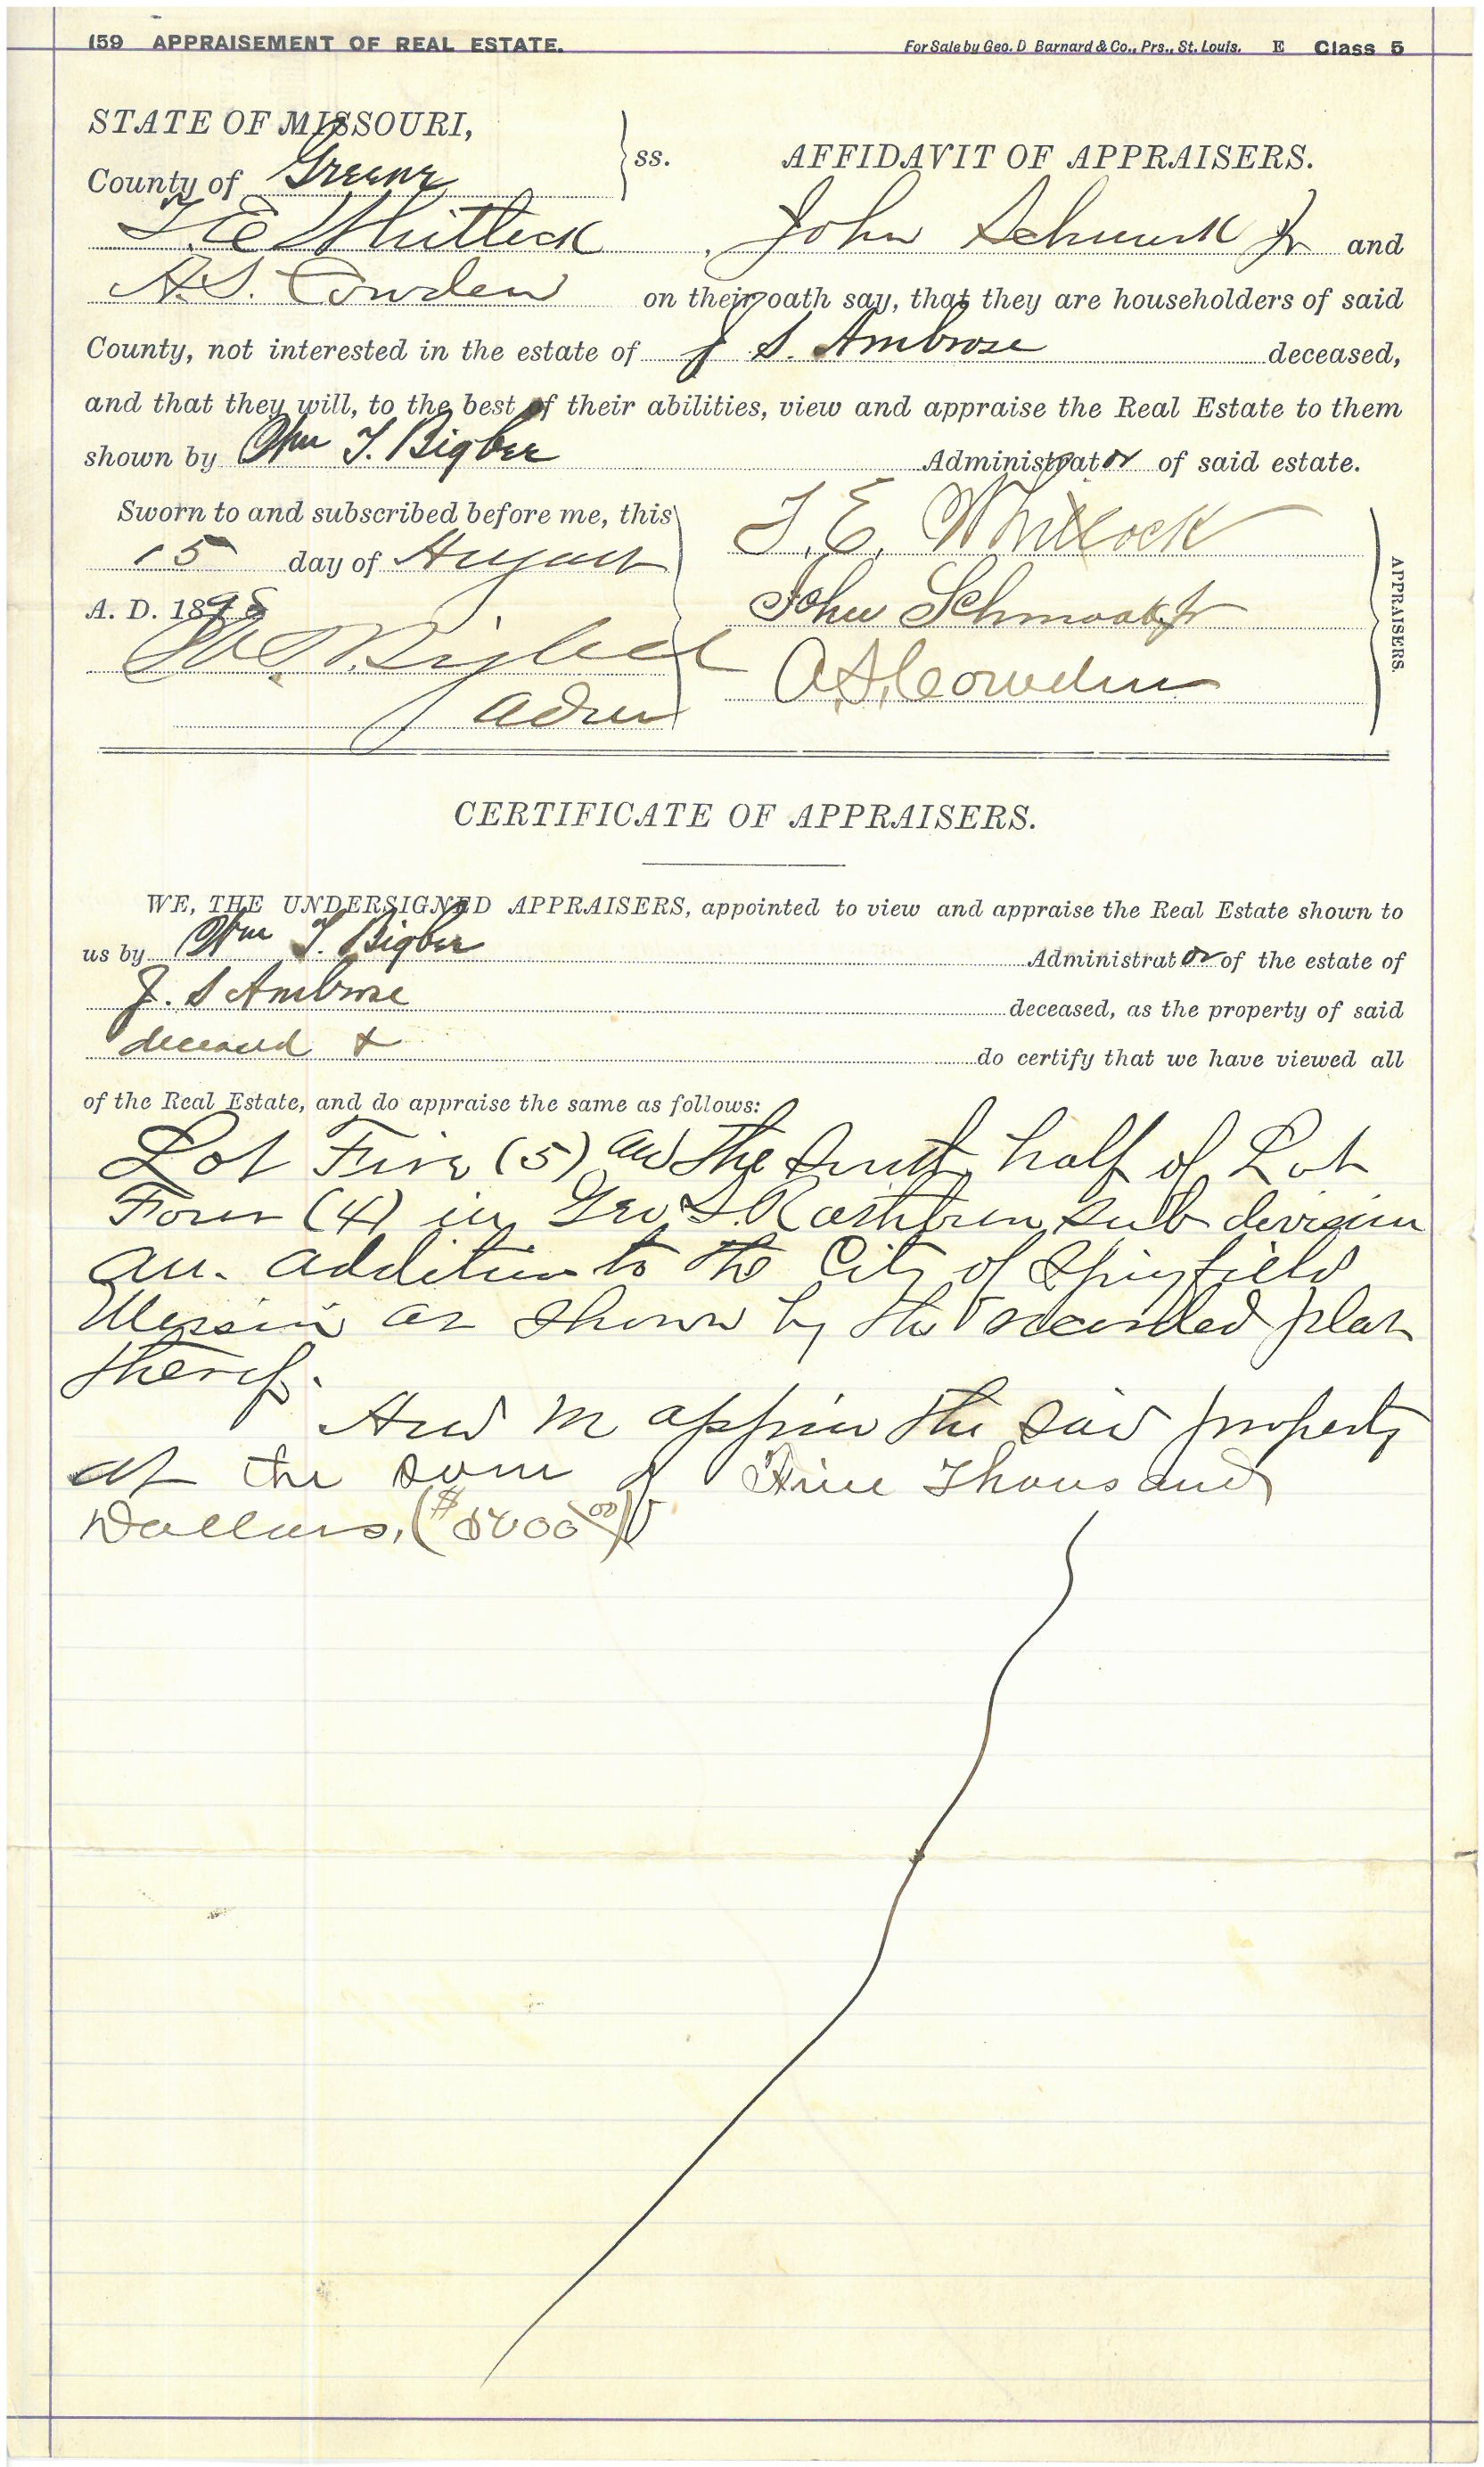 159 APPRAISEMENT OF REAL ESTATE. For Sale by Geo. D Barnard & Co., Prs., St. Louis. E Class 5
STATE OF MISSOURI,
County of Greene ss. AFFIDAVIT OF APPRAISERS.
T. E Whitlock, John Schmook Jr and
A. S. Cowden on their oath say, that they are householders of said
County, not interested in the estate of J S. Ambrose deceased,
and that they will, to the best of their abilities, view and appraise the Real Estate to them
shown by Wm T. Bigbee Administrator of said estate.
Sworn to and subscribed before me, this
15 day of August
A. D. 1898
W. T. Bigbee
Admr
T. E. Whitlock
John Schmook Jr
A. S. Cowden
APPRAISERS.
CERTIFICATE OF APPRAISERS.
WE, THE UNDERSIGNED APPRAISERS, appointed to view and appraise the Real Estate shown to
us by Wm T. Bigbee Administrator of the estate of
J. S Ambrose deceased, as the property of said
deceased & do certify that we have viewed all
of the Real Estate, and do appraise the same as follows:
Lot Five (5) and the South half of Lot
Four (4) in Geo S. Rathbun sub division
an addition to the City of Springfield
Missouri as shown by the recorded plat
thereof.
And we the said property
at the sum of Five Thousand
Dollars, ($5000 00)